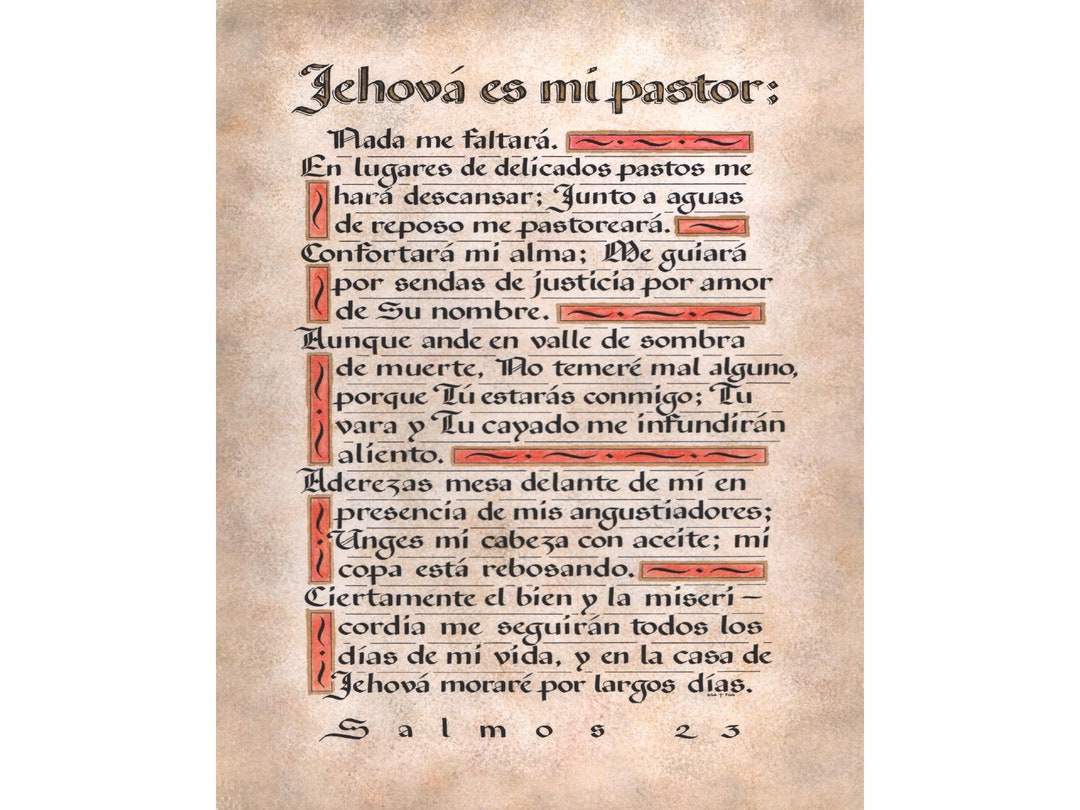 Jehová es mi pastor:
Nada me faltará.
En lugares de delicados pastos me
hará descansar; Junto a aguas
de reposo me pastoreará.
Confortará mi alma; Me guiará
por sendas de justicia por amor
de Su nombre.
Aunque ande en valle de sombra
de muerte, No temeré mal alguno,
porque Tú estarás conmigo; Tu
vara y Tu cayado me infundirán
aliento.
Aderezas mesa delante de mí en
presencia de mis angustiadores;
Unges mi cabeza con aceite; mi
copa está rebosando.
Ciertamente el bien y la miseri-
cordia me seguirán todos los
días de mi vida, y en la casa de
Jehová moraré por largos días.
Salmos 23